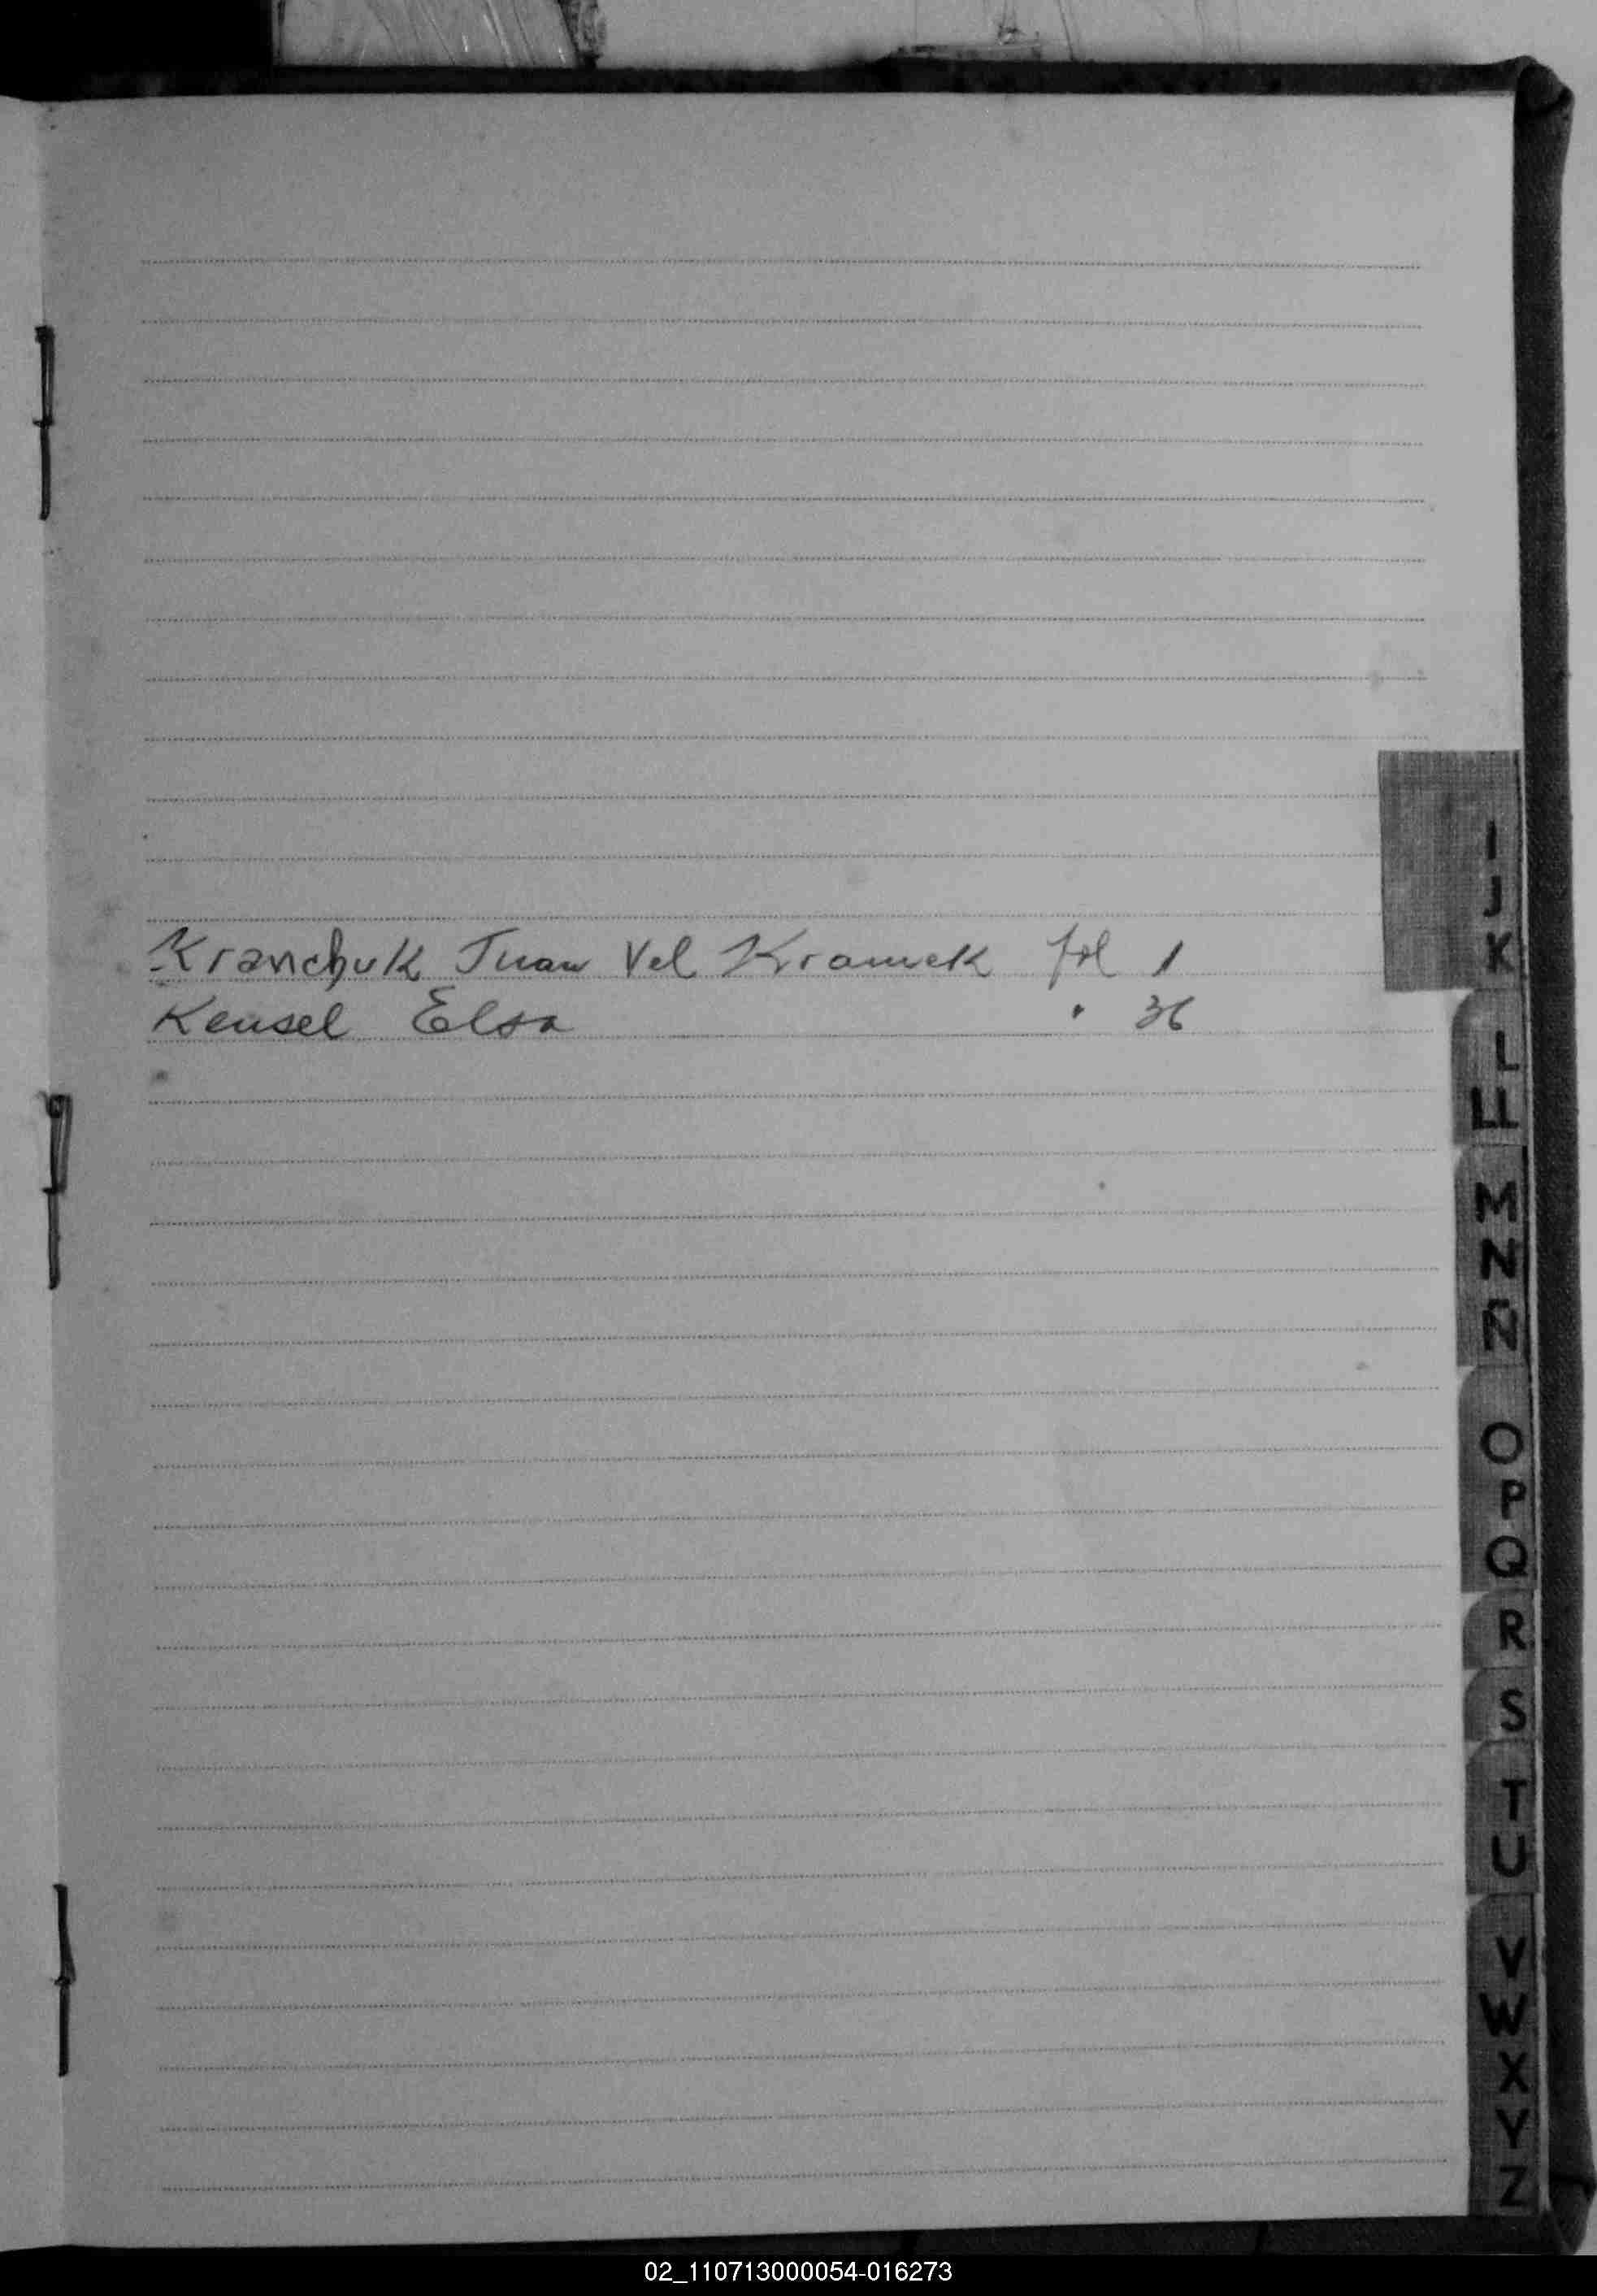 Kranchuk Juan Vel Kramek fol 1
Kensel Elsa " 36
I
J
K
L
LL
M
N
Ñ
O
P
Q
R
S
T
U
V
W
X
Y
Z
02_110713000054-016273